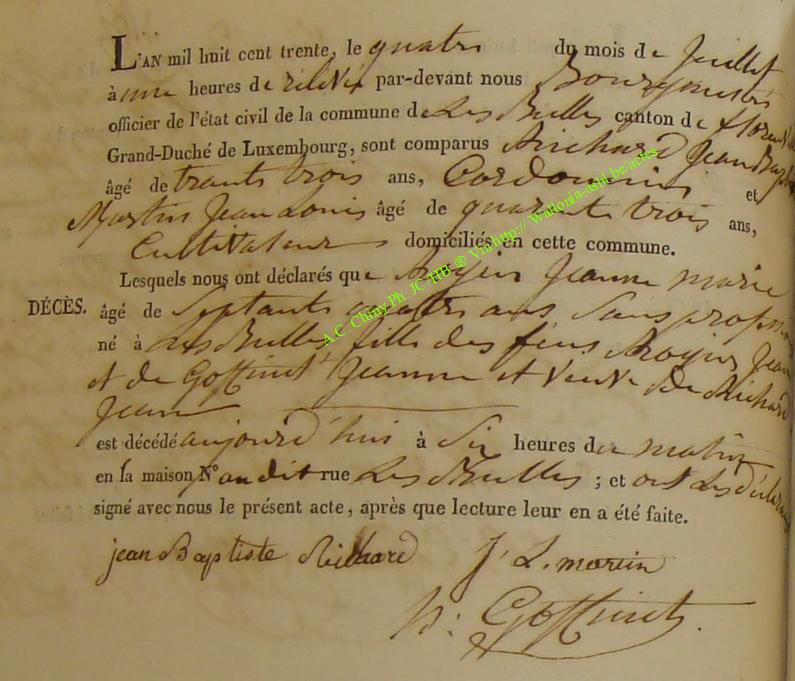 L'AN mil huit cent trente, le quatre du mois de Juillet
à une heures de rélévé par-devant nous Bourgmestre
officier de l'état civil de la commune de Les Bulles canton de florenville
Grand-Duché de Luxembourg, sont comparus Richard Jean Baptiste
âgé de trante trois ans, Cordonnier et
Martin Jean Louis âgé de quarante trois ans,
Cultivateur domiciliés en cette commune.
Lesquels nous ont déclarés que Royer Jeanne marie
DÉCÈS. âgé de Septante quatre ans Sans profession
né à Les Bulles fille des feus Royer Jean
et de Goffinet Jeanne et Veuve de Richard
Jean
est décédé aujourd'hui à Six heures du matin
en la maison N° audit rue Les Bulles ; et ont Les déclarans
signé avec nous le présent acte, après que lecture leur en a été faite.
jean Baptiste Richard J L. martin
h: Goffinet.
A.C. Chiny Ph. JC-HB ® Via http:// Wallonia-asbl.be/actes